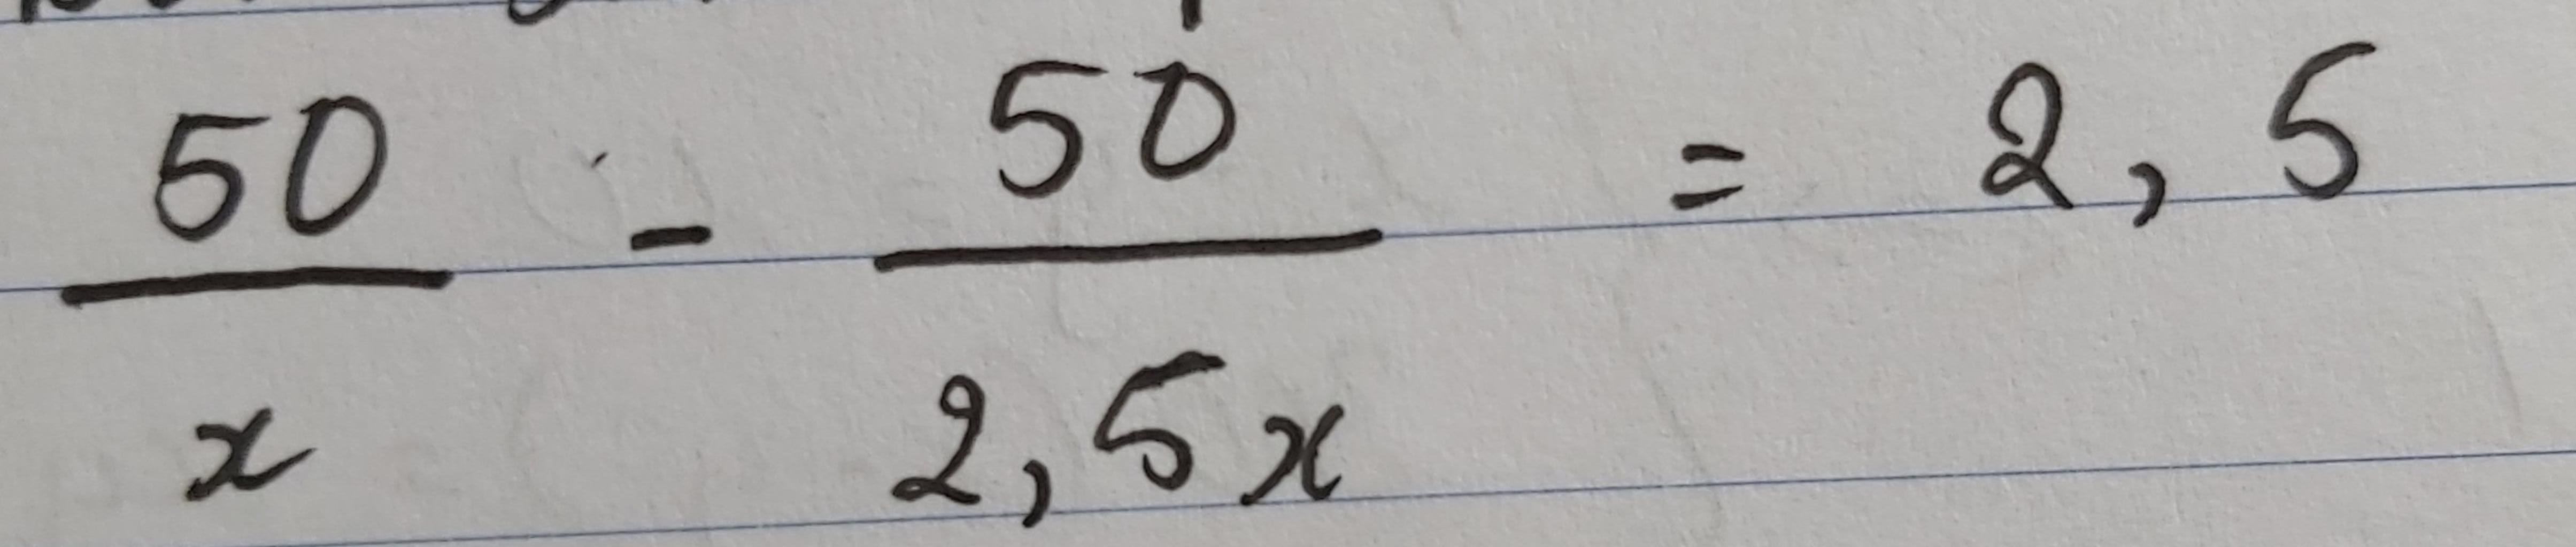 50/x - 50/2,5x = 2,5